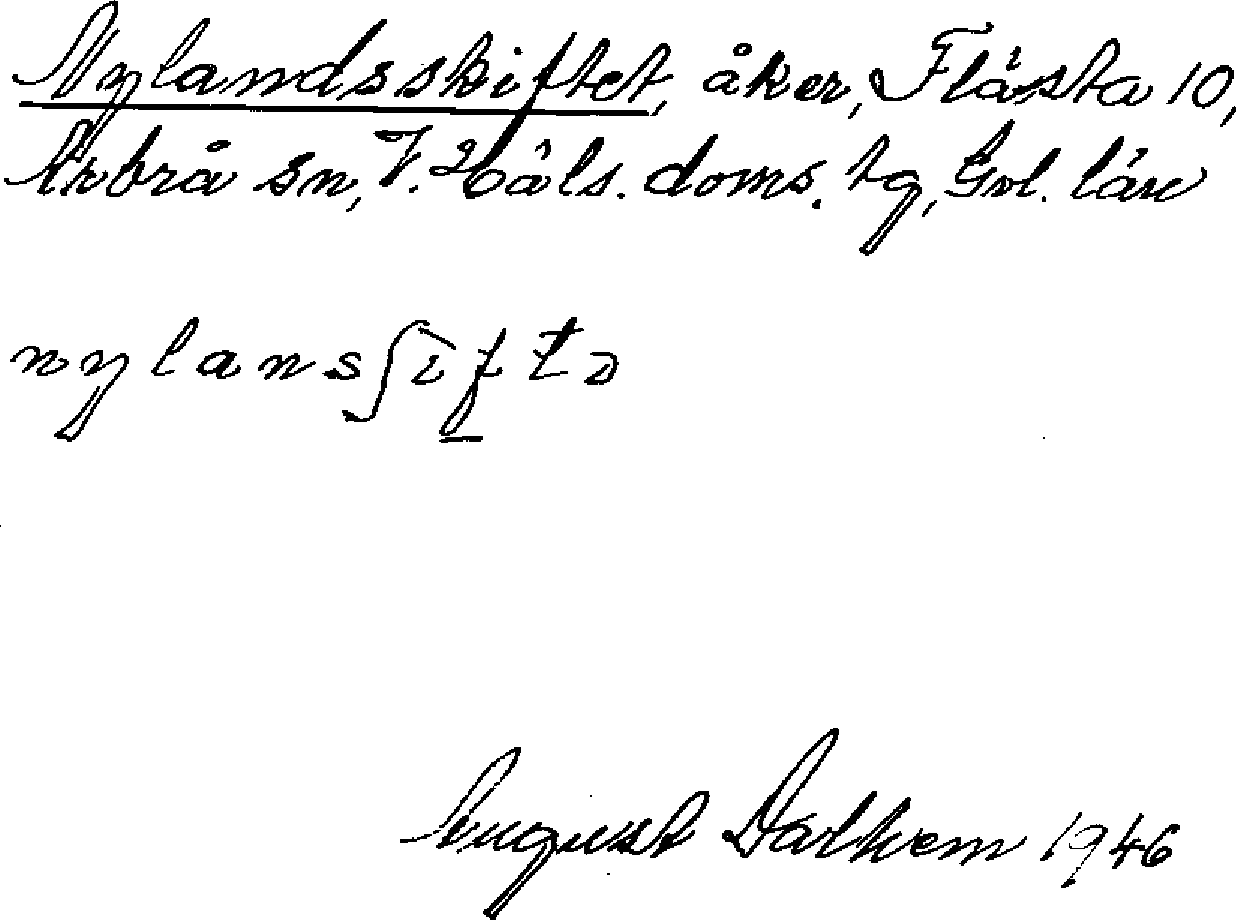 Nylandsskiftet, åker, Flästa 10,
Arbrå sn, V. Häls. doms. tg, Gvl. län
nylansʃɩftə
August Dalhem 1946